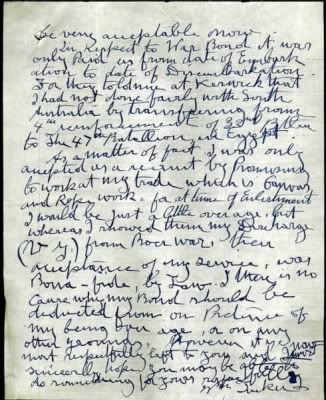 be very acceptable now
In respect to War Bond it was
only Paid as from date of Embark
ation to date of Disembarkation.
For they told me at Keswick that
I had not done fairly with South
Australia by transferring from
4th reinforcement of 32nd Battn
to the 47th Battalion in Egypt.
As a matter of fact I was only
accepted as a recruit by Promising
to work at my trade which is canvas
and Rope work. for at time of Enlistment
I would be just a little over age, but
whereas I showed them my Discharge
(V G) from Boer war. their
acceptance of my service, was
Bona-fide, by Law. & there is no
Cause why my Bond should be
deducted from. on Pretence of
my being over age, or on any
other grounds. However it is
most respectfully left to you and I
sincerely hope you may be able to
do something for yours respectfully